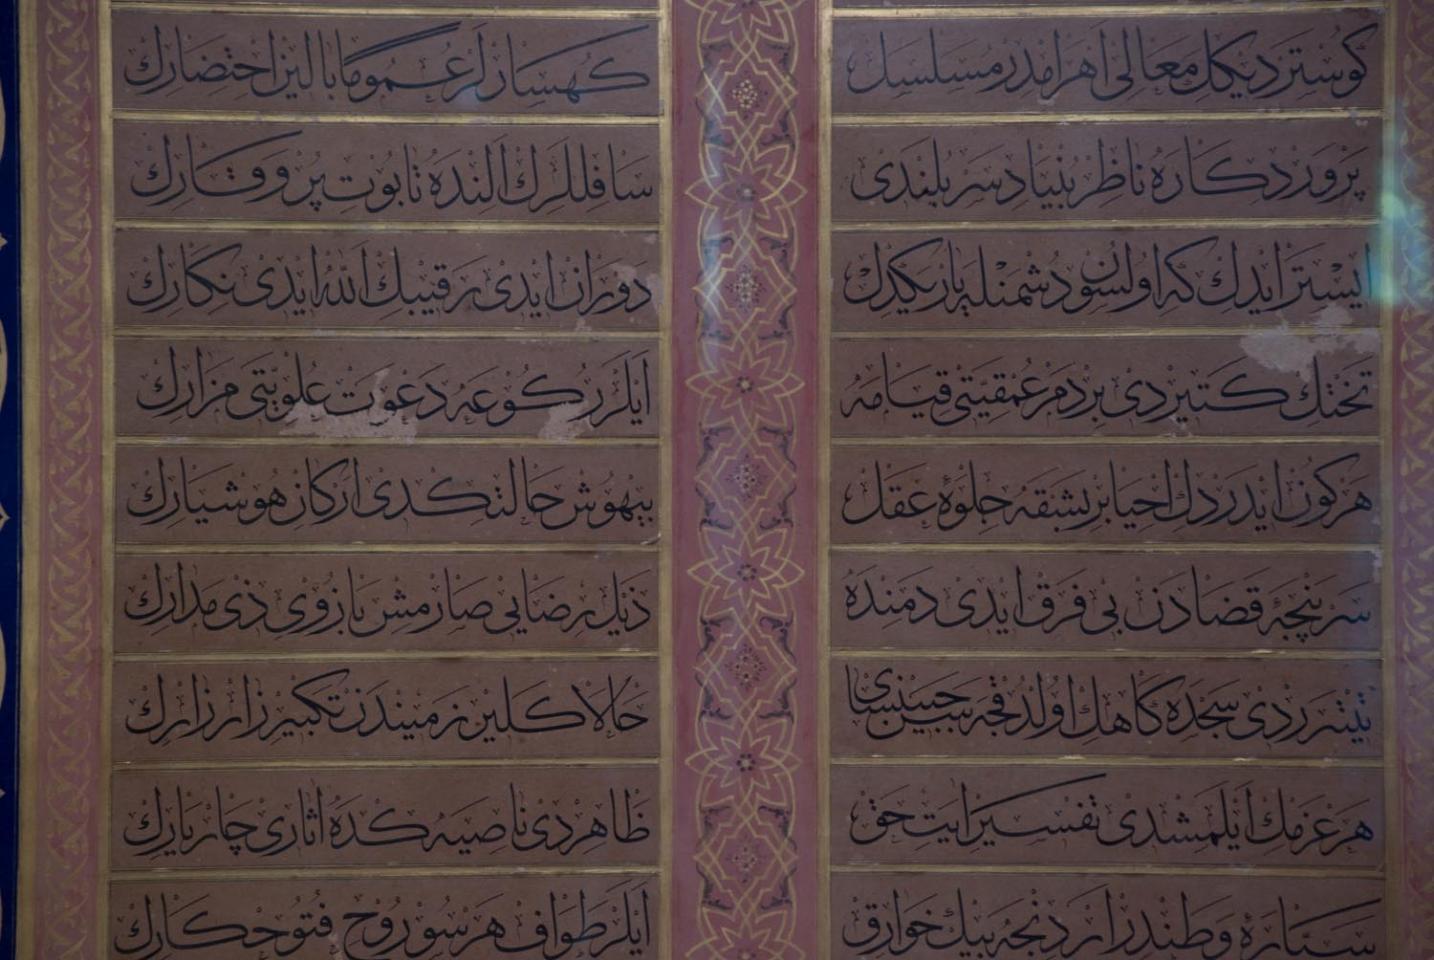 كوستردیكك معالی اهرامدر مسلسل
كهسارلر عموما بالین احتضارك
پرورد‌كاره ناظر بنیاد سر بلندی
سافللرك النده تابوت پر وقارك
ایستر ایدك كه اولسون دشمنله یار یكدل
دوران ایدی رقیبك الله ایدی نكارك
تختك كتیردی بردم عمقیتی قیامه
ایلر ركوعه دعوت علویتی مزارك
هركون ایدردك احیا بر بشقه جلوهٔ عقل
بیهوش حالتكدی اركان هوشیارك
سرپنجهٔ قضادن بی فرق ایدی دمنده
ذیل رضایی صارمش بازوی ذی مدارك
تیتردی سجده كاهك اولدقجه جبین سا
حالا كلین زمیندن تكبیر زار زارك
هر عزمك ایلمشدی تفسیر ایت حق
ظاهردی ناصیه كده اثاری چار یارك
ستارهٔ وطندر ارد نجه بیك خوارق
ایلر طواف هرسو روح فتوحكارك